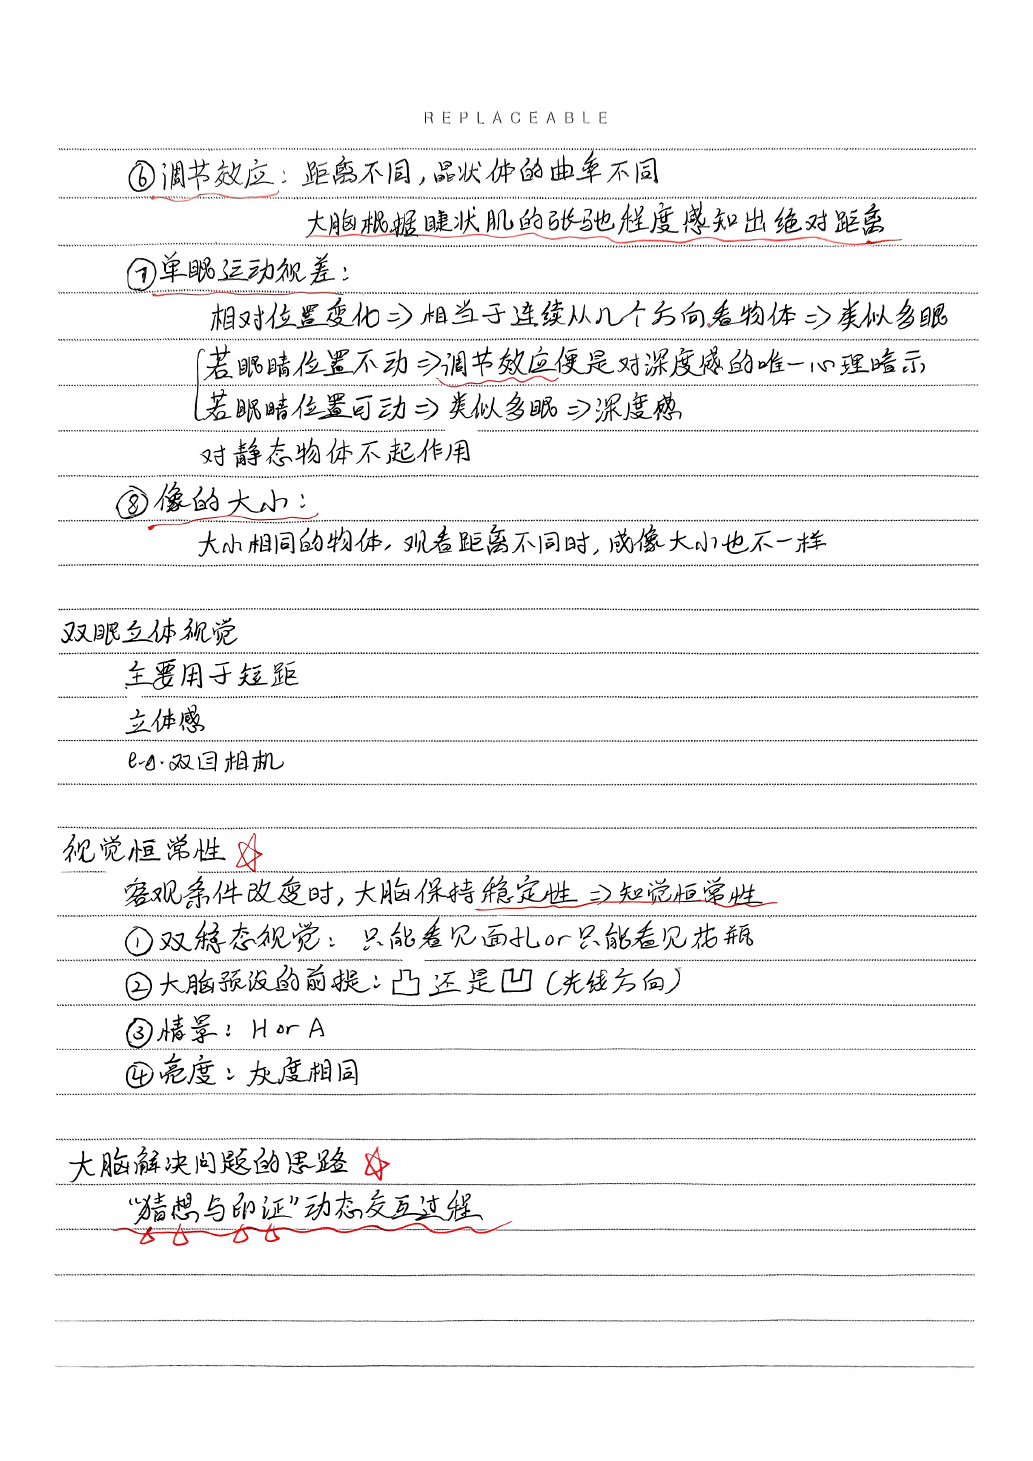 REPLACEABLE
⑥调节效应：距离不同,晶状体的曲率不同
大脑根据睫状肌的张驰程度感知出绝对距离
⑦单眼运动视差：
相对位置变化⇒相当于连续从几个方向看物体⇒类似多眼
若眼睛位置不动⇒调节效应便是对深度感的唯一心理暗示
若眼睛位置可动⇒类似多眼⇒深度感
对静态物体不起作用
⑧像的大小：
大小相同的物体,观看距离不同时,成像大小也不一样
双眼立体视觉
主要用于短距
立体感
e.g.双目相机
视觉恒常性☆
客观条件改变时,大脑保持稳定性⇒知觉恒常性
①双稳态视觉：只能看见面孔or只能看见花瓶
②大脑预设的前提：凸还是凹(光线方向)
③情景：H or A
④亮度：灰度相同
大脑解决问题的思路☆
“猜想与印证”动态交互过程